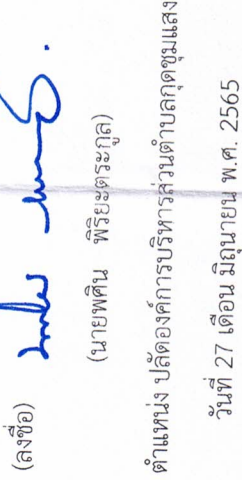 (ลงชื่อ)
(นายพศิน พิริยะตระกูล)
ตำแหน่ง ปลัดองค์การบริหารส่วนตำบลกุดชุมแสง
วันที่ 27 เดือน มิถุนายน พ.ศ. 2565